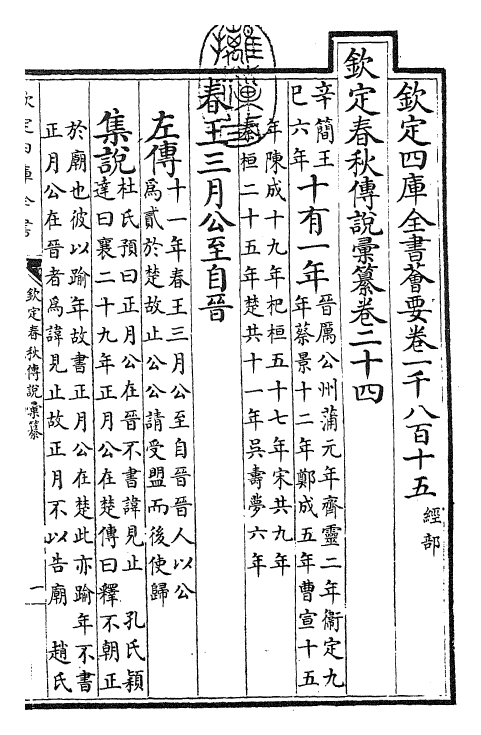 欽定四庫全書薈要卷一千八百十五 經部
欽定春秋傳說彙纂卷二十四
辛簡王
巳六年
十有一年
晉厲公州蒲元年齊靈二年衛定九
年蔡景十二年鄭成五年曹宣十五
年陳成十九年杞桓五十七年宋共九年
秦桓二十五年楚共十一年吳壽夢六年
春王三月公至自晉
左傳
十一年春王三月公至自晉晉人以公
為貳於楚故止公公請受盟而後使歸
集說
杜氏預曰正月公在晉不書諱見止 孔氏穎
達曰襄二十九年正月公在楚傳曰釋不朝正
於廟也彼以踰年故書正月公在楚此亦踰年不書
正月公在晉者為諱見止故正月不以告廟 趙氏
欽定四庫全書
欽定春秋傳說彙纂
一